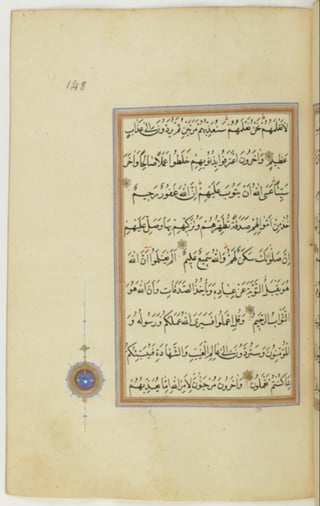 148
لاتعلمهم نحن نعلمهم سنعذبهم مرتين ثم يردون الى عذاب
عظيم وآخرون اعترفوا بذنوبهم خلطوا عملا صالحا وآخر
سيئا عسى الله أن يتوب عليهم إن الله غفور رحيم
خذ من أموالهم صدقة تطهرهم وتزكيهم بها وصل عليهم
إن صلوتك سكن لهم والله سميع عليم ألم يعلموا أن الله
هو يقبل التوبة عن عباده ويأخذ الصدقات وأن الله هو
التواب الرحيم وقل اعملوا فسيرى الله عملكم ورسوله و
المؤمنون وستردون الى عالم الغيب والشهادة فينبئكم
بما كنتم تعملون وآخرون مرجون لأمر الله إما يعذبهم